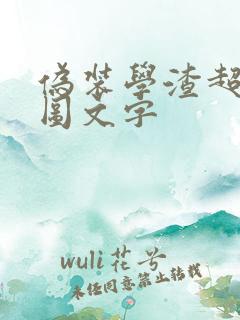 偽裝學渣超
圖文字
wuli花兮
未经同意禁止转载